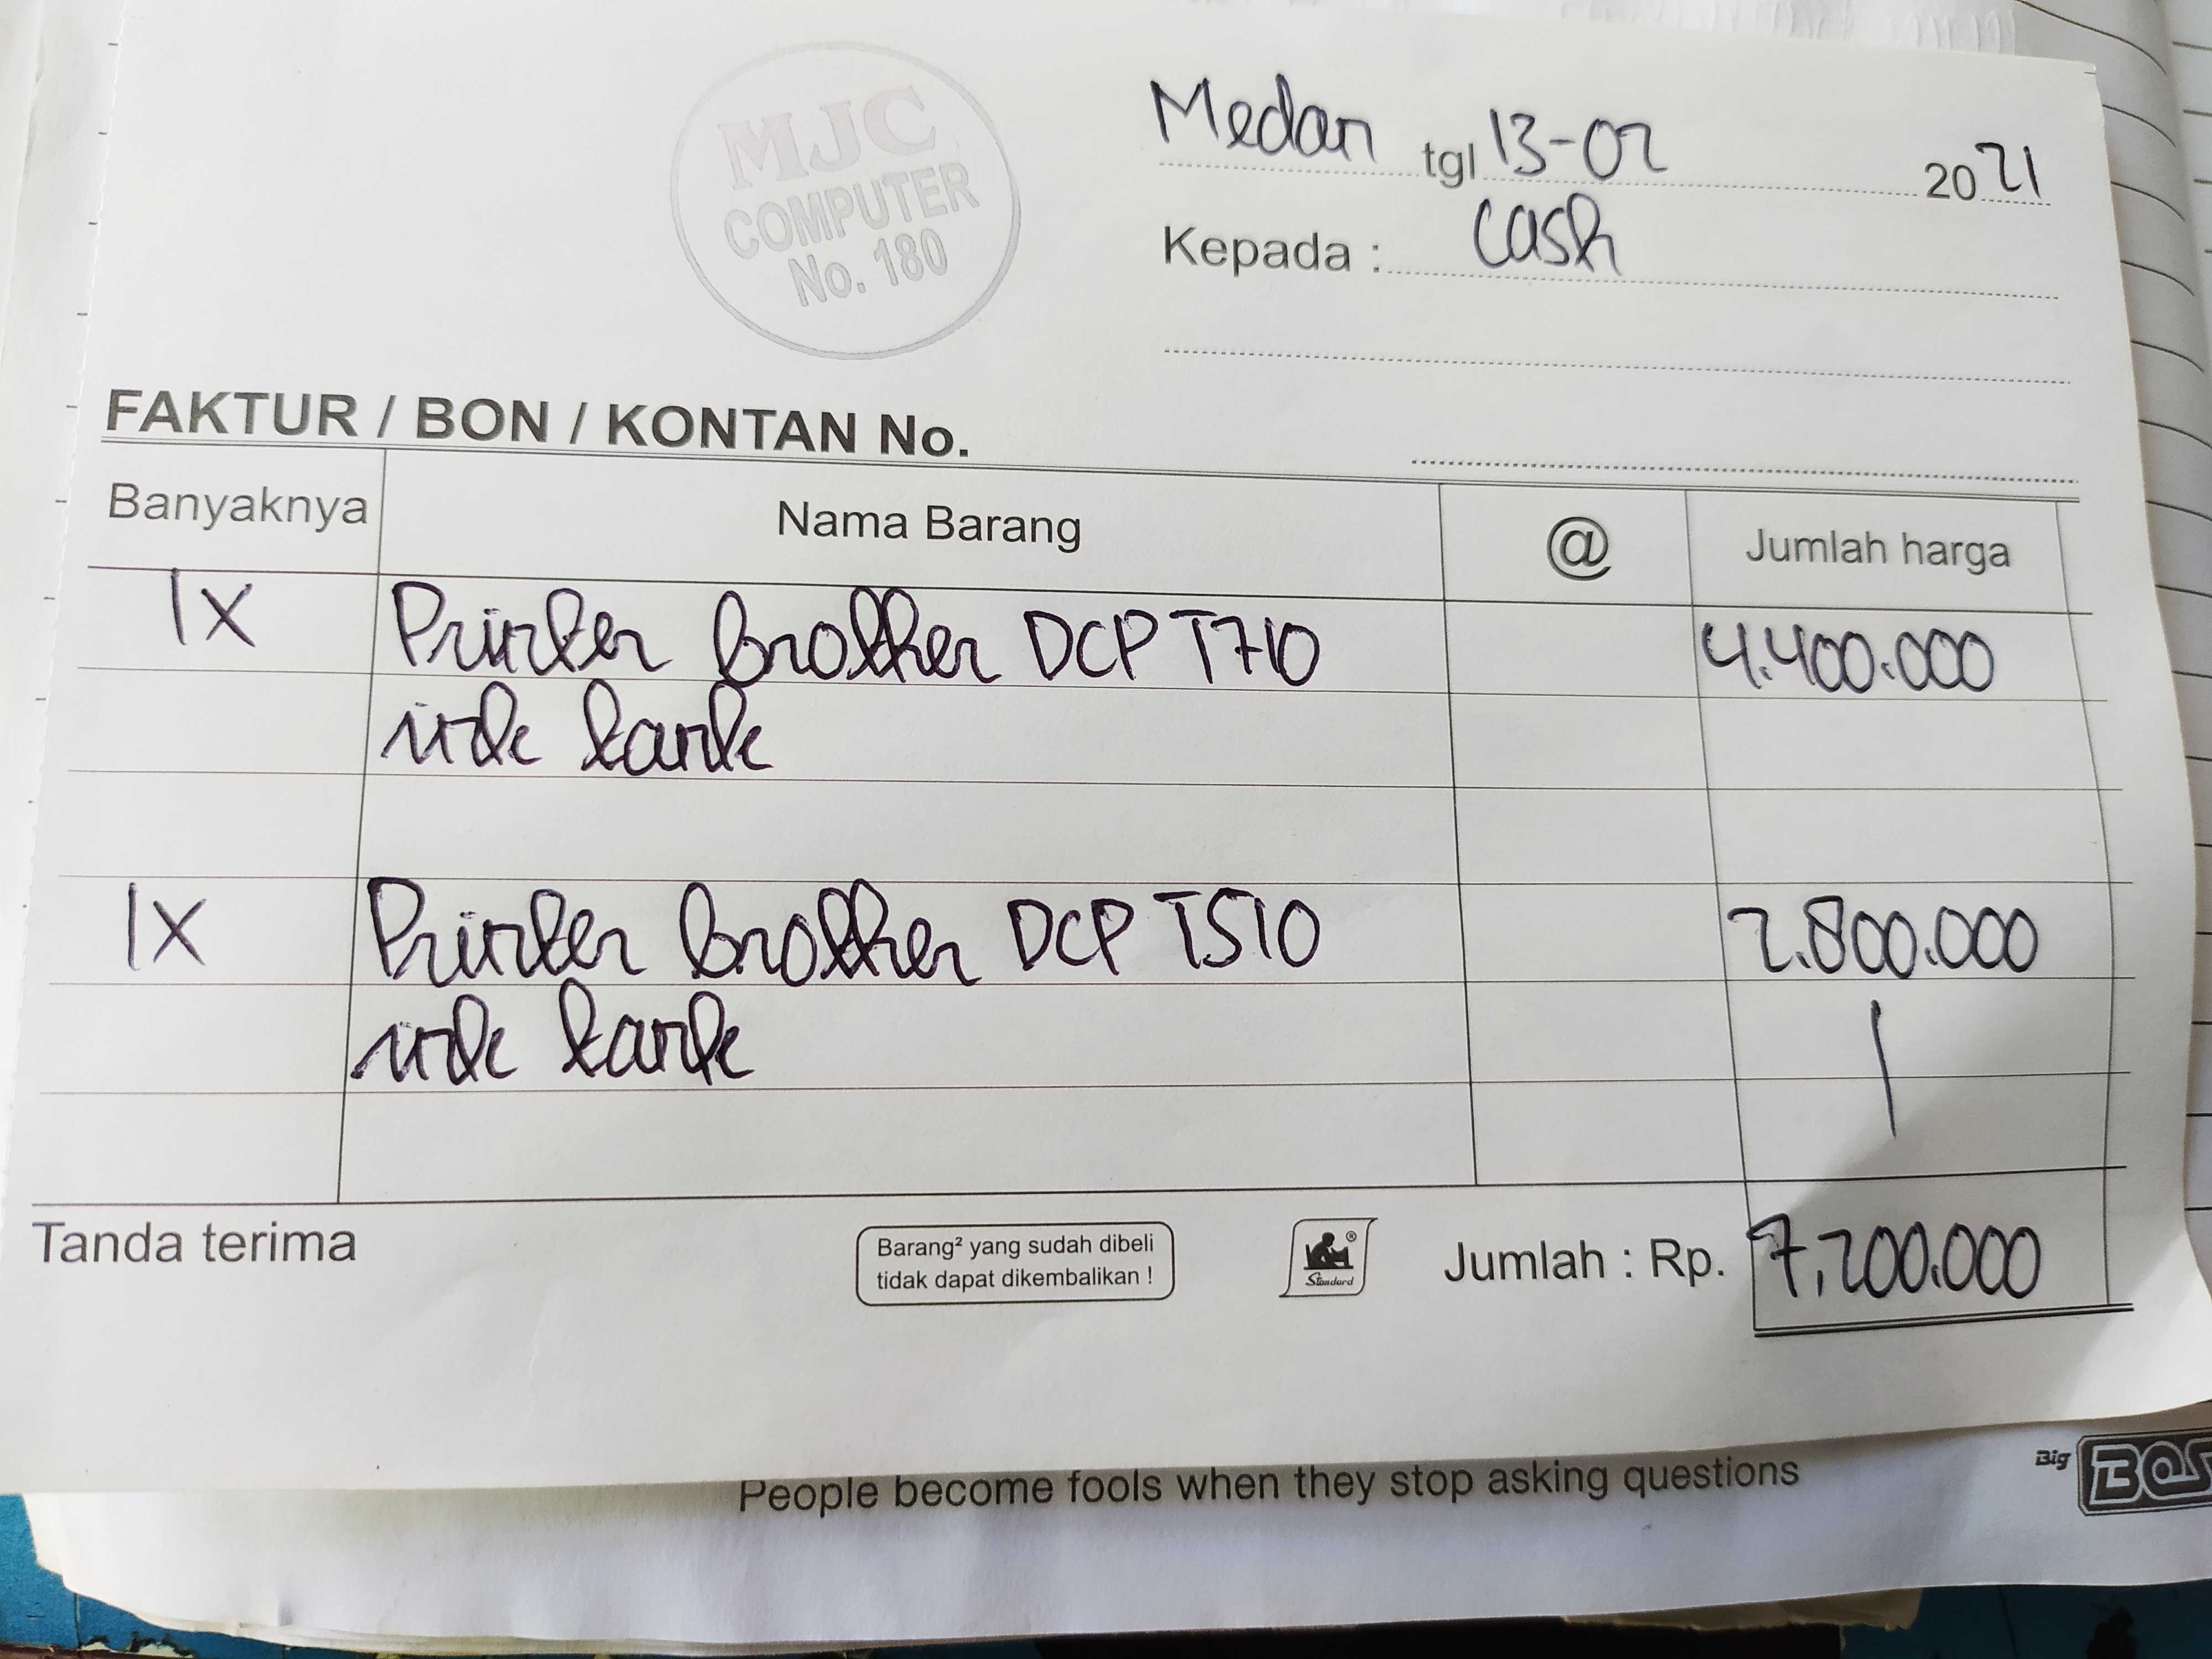 MJC
COMPUTER
No. 180
Medan tgl 13-02 2021
Kepada : Cash
FAKTUR / BON / KONTAN No.
Banyaknya Nama Barang @ Jumlah harga
1X Printer brother DCP T710 4.400.000
ink tank
1X Printer brother DCP T510 2.800.000
ink tank
Tanda terima
Barang² yang sudah dibeli
tidak dapat dikembalikan !
Standard ®
Jumlah : Rp. 7.200.000
People become fools when they stop asking questions
Big